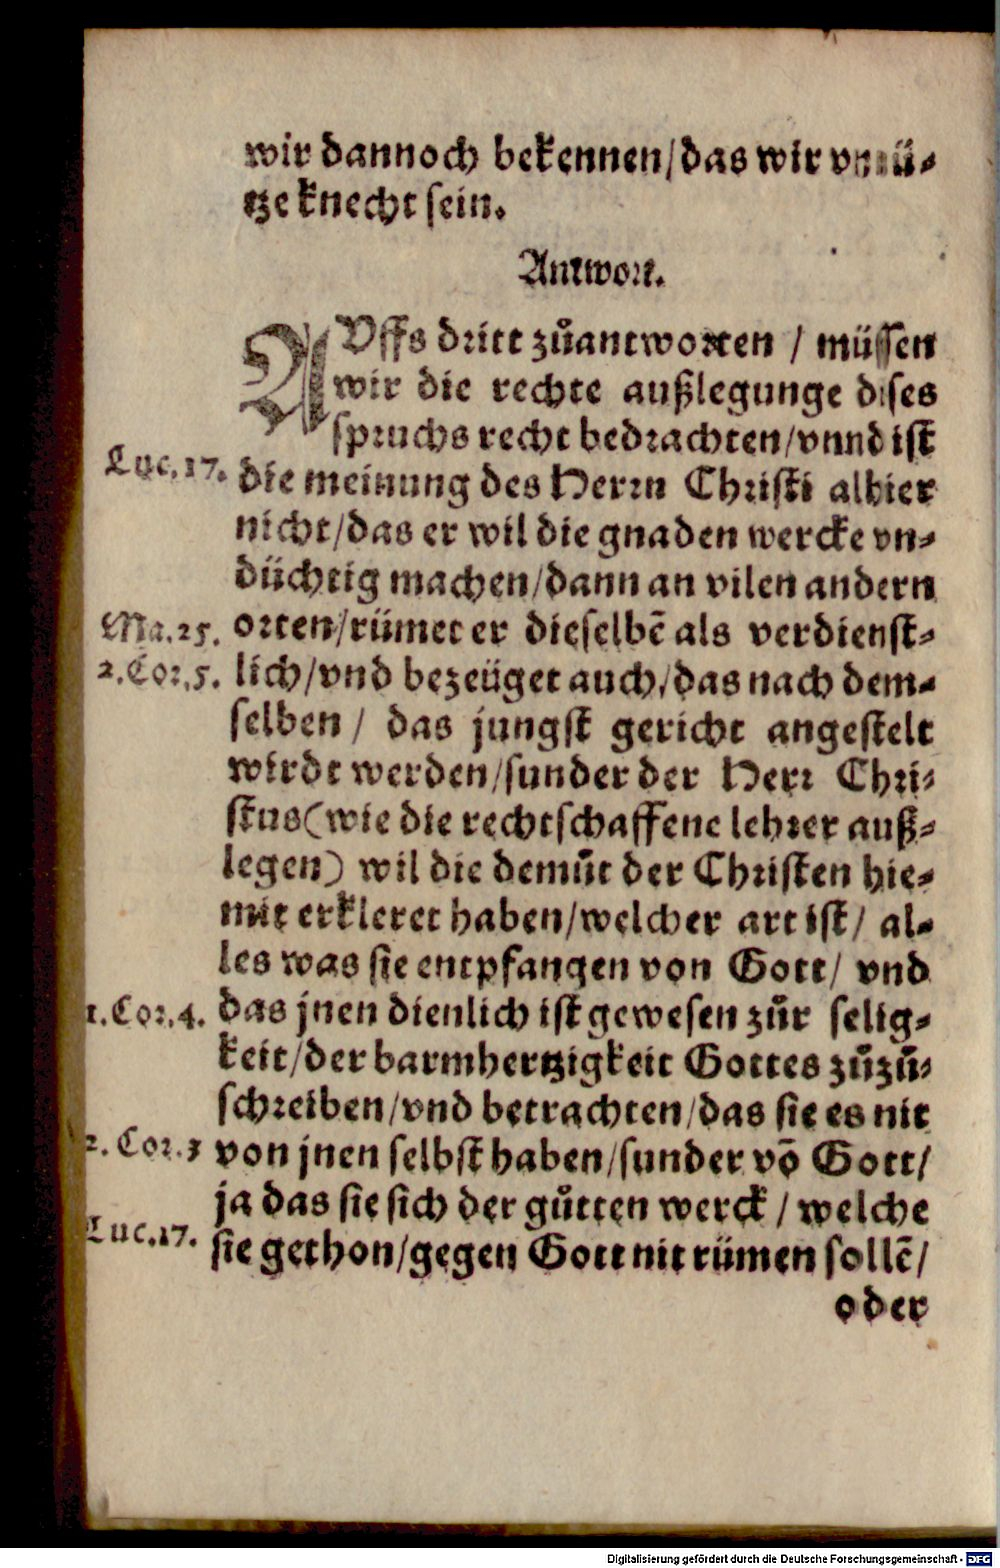 wir dannoch bekennen/das wir vnnü-
tze knecht sein.
Antwort.
AVffs dritt zůantworten / müssen
wir die rechte außlegunge dises
spruchs recht bedrachten/vnnd ist
Luc.17. die meinung des Herrn Christi alhier
nicht/das er wil die gnaden wercke vn-
düchtig machen/dann an vilen andern
Ma.25. orten/rümet er dieselbē als verdienst-
2.Cor.5. lich/vnd bezeüget auch/das nach dem-
selben / das jungst gericht angestelt
wirdt werden/sunder der Herr Chri-
stus(wie die rechtschaffene lehrer auß-
legen) wil die demůt der Christen hie-
mit erkleret haben/welcher art ist/ al-
les was sie entpfangen von Gott/ vnd
1.Cor.4. das jnen dienlich ist gewesen zůr selig-
keit/der barmhertzigkeit Gottes zůzů-
schreiben/vnd betrachten/das sie es nit
2.Cor.3 von jnen selbst haben/sunder vō Gott/
ja das sie sich der gůtten werck / welche
Luc.17. sie gethon/gegen Gott nit rümen sollē/
oder
Digitalisierung gefördert durch die Deutsche Forschungsgemeinschaft - DFG